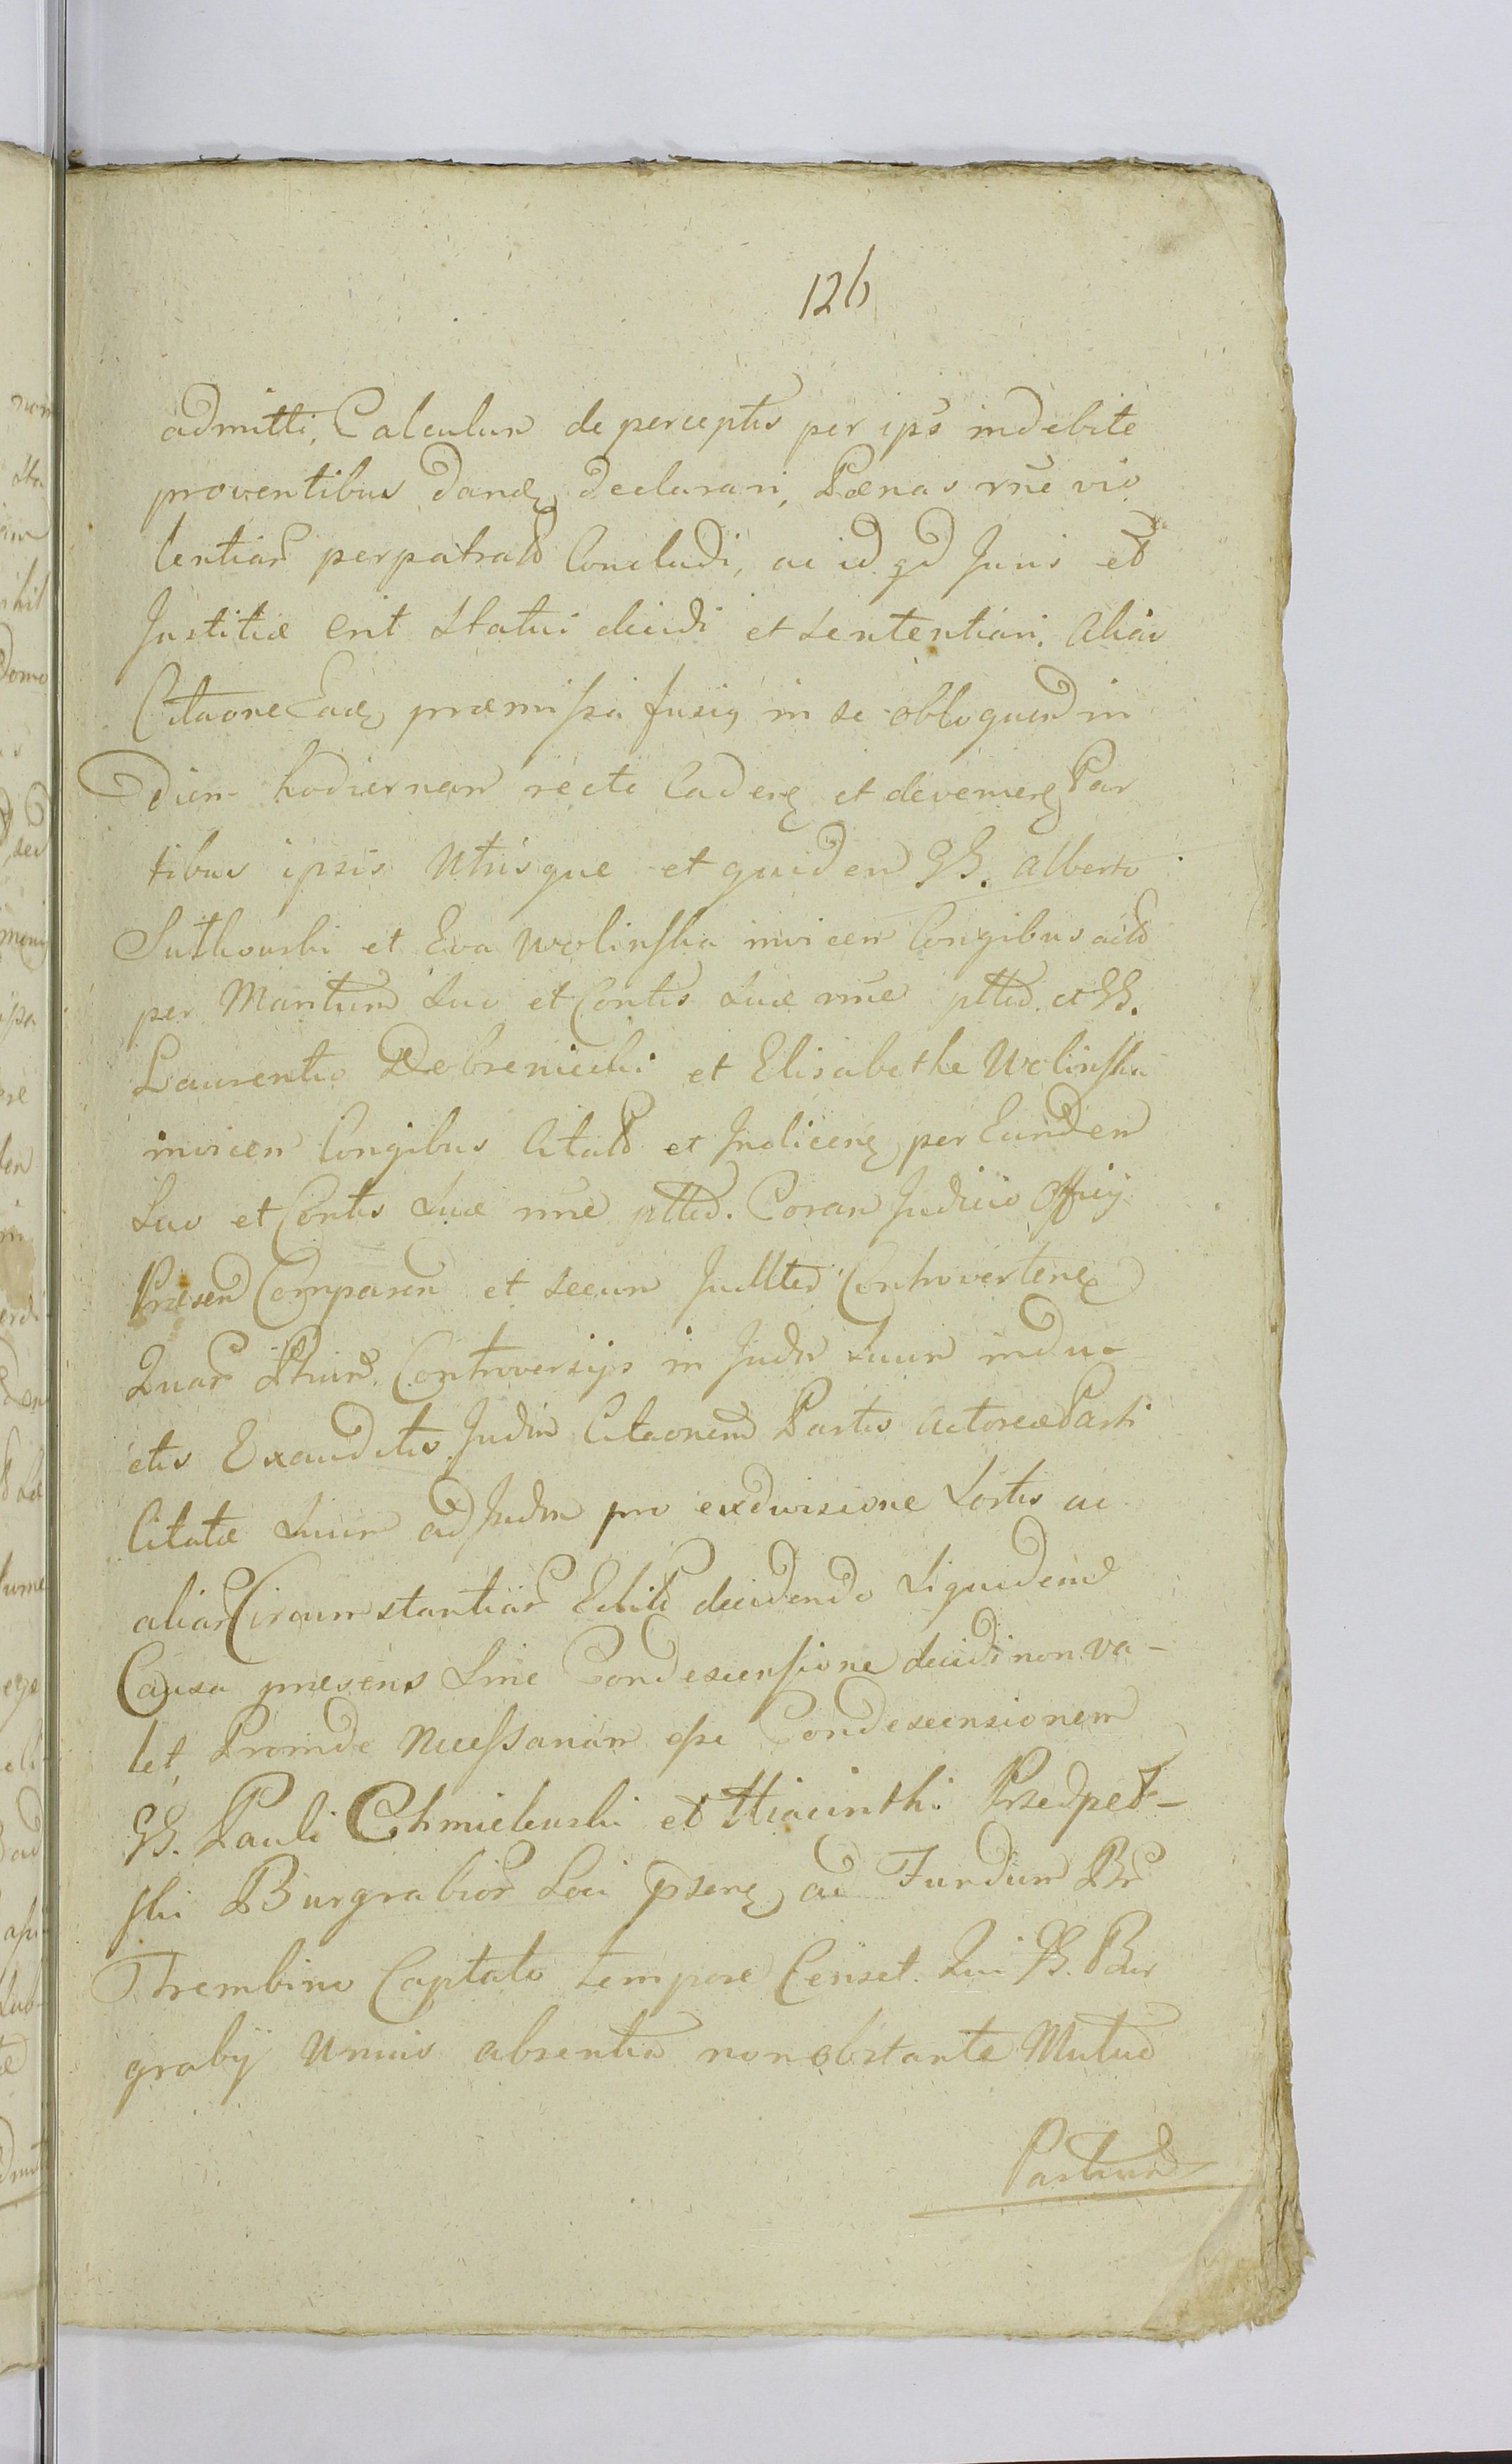 126
admitti, Calculum de perceptis per ips indebite
proventibus dand, declarari, Pænas rne vio
lentiar perpatrat Concludi, ac id qd Juris et
Justitiæ erit statui decidi et sententiari. Alias
Citaone Ead, præmissa fusig in se obloquen in
Diem hodiernam recte Caden et devenien Par
tibus ipsis Utrisque et quidem GG. Alberto
Sutkowski et Eva Wolinska invicem Congibus act
per Maritum suo et Contis suæ nne ptted. et GG.
Laurentio Debreniecki et Elisabethe Wolinska
invicem Congibus Citat et Indicen per Eundem
suo et Contis suæ nne ptted. Coram Judicio Officij
Præsen Comparen et secum Judllter Controverten
Quar Ptium Controversijs in Judm suum indu-
ctis Exauditis Judm Citaonem Partis Actoreæ Parti
Citatæ suum ad Judm pro exdivisione Sortis ac
aliar Circumstantiar Edit decidendo siquidem
Causa præsens Sine Condescensione decidi non va-
let, Proinde Necessariam esse Condescensionem
GG. Pauli Chmielewski et Hiacinthi Przedpeł-
ski Burgrabior Loci psen, ad Fundum Br
Trembino Captato tempore Censet. Qui GG. Bur
grabij Unius absentia non obstante Mutuo
Partium